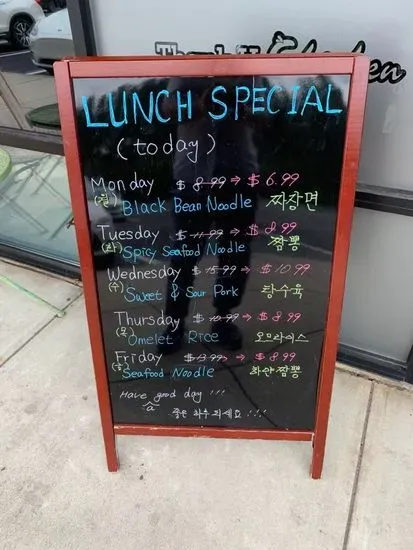 Thank U Chicken
LUNCH SPECIAL
(today)
Monday $ 8.99 → $ 6.99
(월) Black Bean Noodle 짜장면
Tuesday $ 11.99 → $ 8.99
(화) Spicy Seafood Noodle 짬뽕
Wednesday $ 15.99 → $ 10.99
(수) Sweet & Sour Pork 탕수육
Thursday $ 10.99 → $ 8.99
(목) Omelet Rice 오므라이스
Friday $ 13.99 → $ 8.99
(금) Seafood Noodle 하얀짬뽕
Have a good day !!!
좋은 하루 되세요 !!!